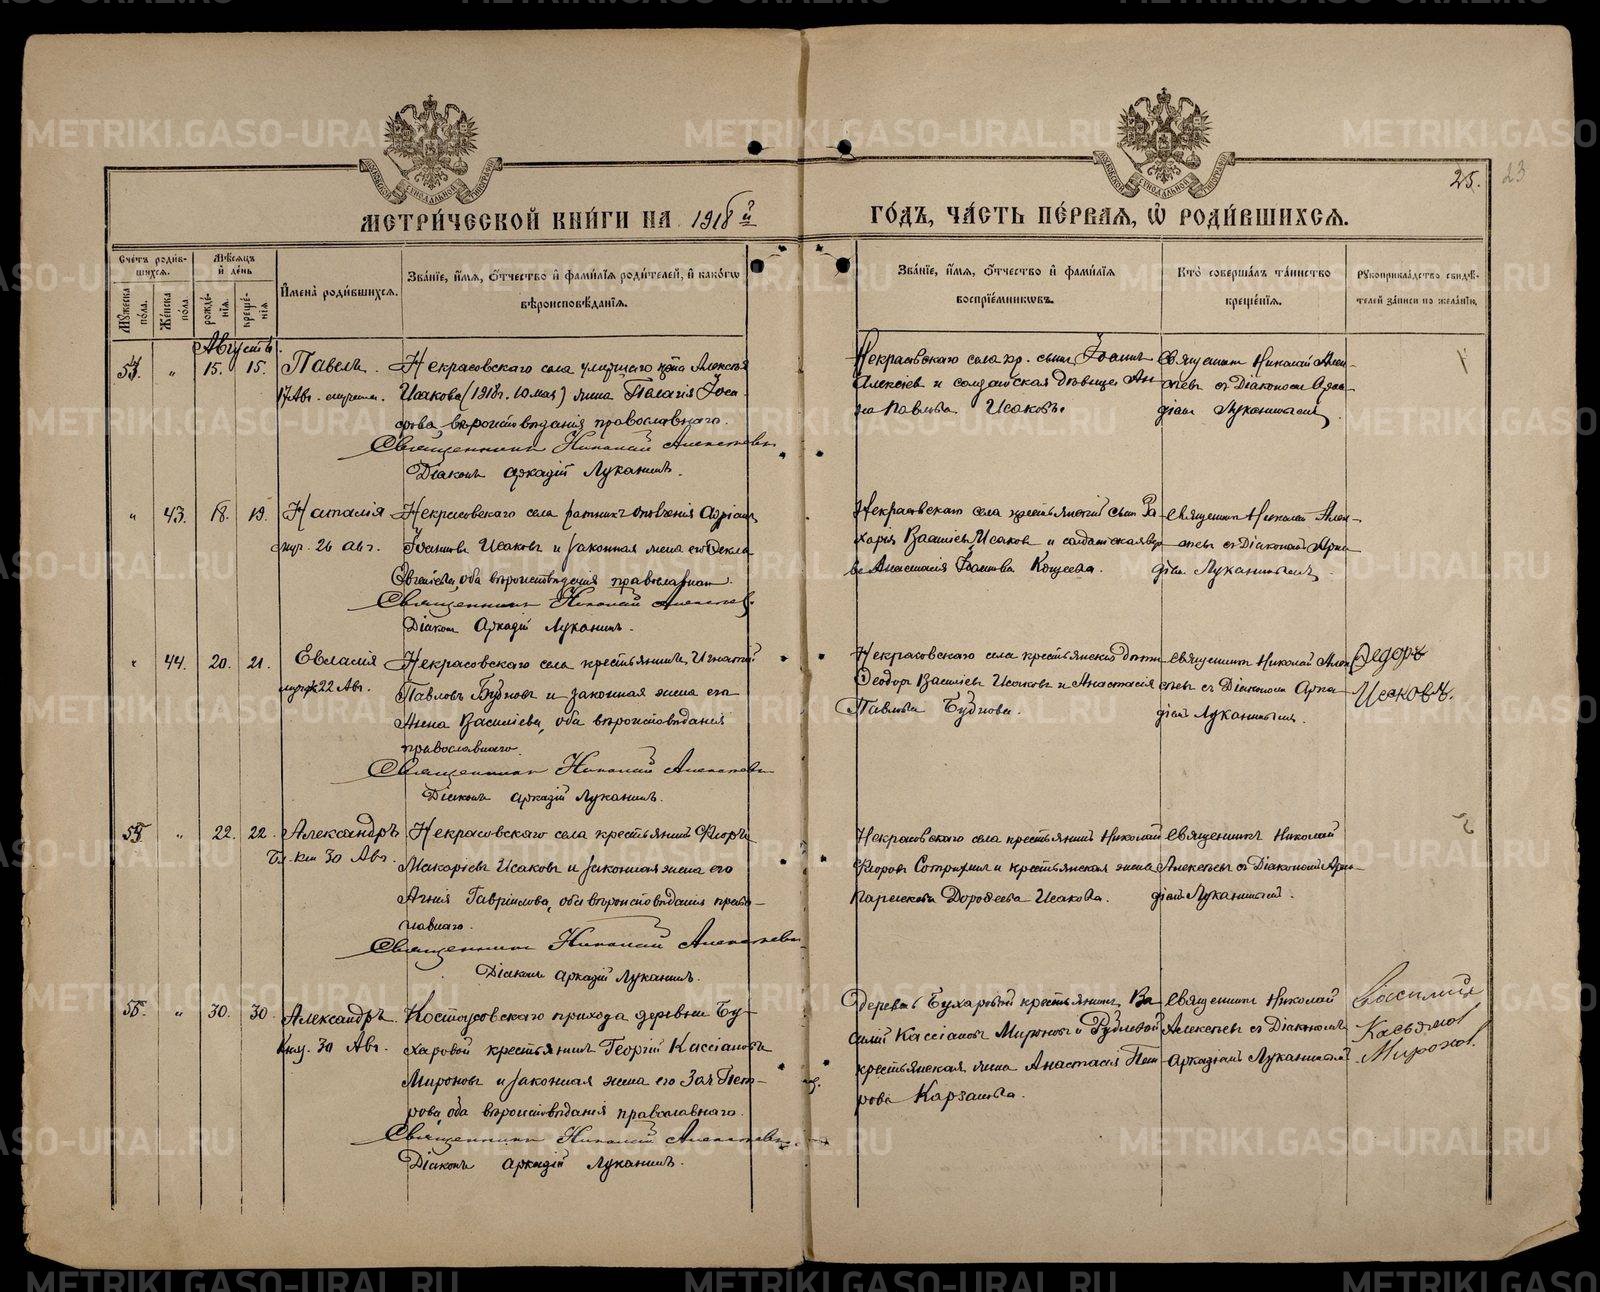 25. 23
МЕТРИ́ЧЕСКОЙ КНИ́ГИ НА 1918 й
ГО́ДЪ, ЧА́СТЬ ПЕ́РВАЯ, Ѡ҆ РОДИ́ВШИХСЯ.
Сче́тъ роди́вшихся.
Му́жеска по́ла.
Же́нска по́ла
Мѣ́сяцъ и҆ де́нь
рожде́нїя.
креще́нїя
И҆мена̀ роди́вшихся.
Зва́нїе, и҆́мя, ѻ҆́тчество и҆ фами́лїя роди́телей, и҆ како́гѡ
вѣроисповѣ́данїя.
Зва́нїе, и҆́мя, ѻ҆́тчество и҆ фами́лїя
воспрїе́мниковъ.
Кто̀ соверша́лъ та́инство
креще́нїя.
Рꙋкоприкла́дство свидѣ́-
телей за́писи по жела́нїю.
Августъ.
" 15. 15. Павелъ.
17 Авг.
Некрасовскаго села Алексѣя
Исакова (1918г. 10 мая) жена Пелагія
вѣроисповѣданія православнаго.
Священникъ Николай Алексѣевъ
Діаконъ Аркадій Луканинъ.
Некрасовскаго села кр. сынъ Іоаннъ
Алексѣевъ и солдатская дѣвица Ан-
на Павлова Исаковы.
Священникъ Николай Алек-
сѣевъ съ Діакономъ Арка-
діемъ Луканинымъ
" 43. 18. 19. Наталія
26 Авг.
Некрасовскаго села ратникъ ополченія Адріанъ
Исаковъ и законная жена его Ѳекла
оба вѣроисповѣданія православнаго.
Священникъ Николай Алексѣевъ
Діаконъ Аркадій Луканинъ.
Некрасовскаго села крестьянскій сынъ За-
харія Василіевъ Исаковъ и солдатская
Анастасія Кощеева.
Священникъ Николай Алек-
сѣевъ съ Діакономъ Арка-
діемъ Луканинымъ.
" 44. 20. 21. Евлалія
22 Авг.
Некрасовскаго села крестьянинъ Игнатій
Павловъ Будновъ и законная жена его
Анна Василіева, оба вѣроисповѣданія
православнаго.
Священникъ Николай Алексѣевъ
Діаконъ Аркадій Луканинъ.
Некрасовскаго села крестьянскіе дѣти
Ѳеодоръ Василіевъ Исаковъ и Анастасія
Павлова Буднова.
Священникъ Николай Алек-
сѣевъ съ Діакономъ Арка-
діемъ Луканинымъ.
Ѳедоръ
Исаковъ.
" 22. 22. Александръ
30 Авг.
Некрасовскаго села крестьянинъ Флоръ
Макаріевъ Исаковъ и законная жена его
Агнія Гавріилова, оба вѣроисповѣданія право-
славнаго.
Священникъ Николай Алексѣевъ
Діаконъ Аркадій Луканинъ.
Некрасовскаго села крестьянинъ Николай
Флоровъ и крестьянская жена
Параскева Дороѳеева Исакова.
Священникъ Николай
Алексѣевъ съ Діакономъ Арка-
діемъ Луканинымъ.
" 30. 30. Александръ.
30 Авг.
Костоусовскаго прихода деревни Бу-
харовой крестьянинъ Георгій Кассіановъ
Мироновъ и законная жена его Зоя Пет-
рова, оба вѣроисповѣданія православнаго.
Священникъ Николай Алексѣевъ
Діаконъ Аркадій Луканинъ.
Деревень Бухаровой крестьянинъ Ва-
силій Кассіановъ Мироновъ и
крестьянская жена Анастасія Пет-
рова
Священникъ Николай
Алексѣевъ съ Діакономъ
Аркадіемъ Луканинымъ
Василий
Касьянов
Миронов.
METRIKI.GASO-URAL.RU